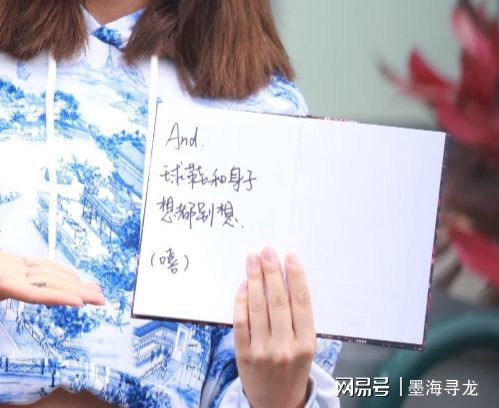 And.
球鞋和身子
想都别想.
(嘻)
网易号 | 墨海寻龙